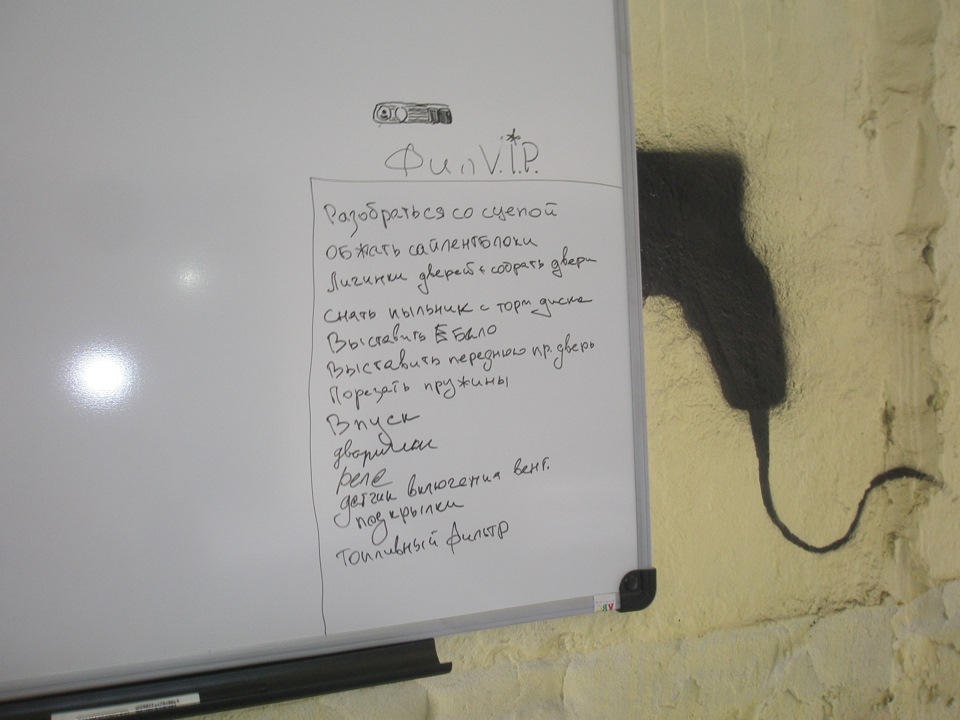 Фил V.I.P.
Разобраться со сцепой
Обжать сайлентблоки
Личинки дверей + собрать двери
Снять пыльник с торм диска
Выставить Ебало
Выставить переднюю пр. дверь
Порезать пружины
Впуск
дворники
реле
датчик включения вент.
подкрылки
Топливный фильтр